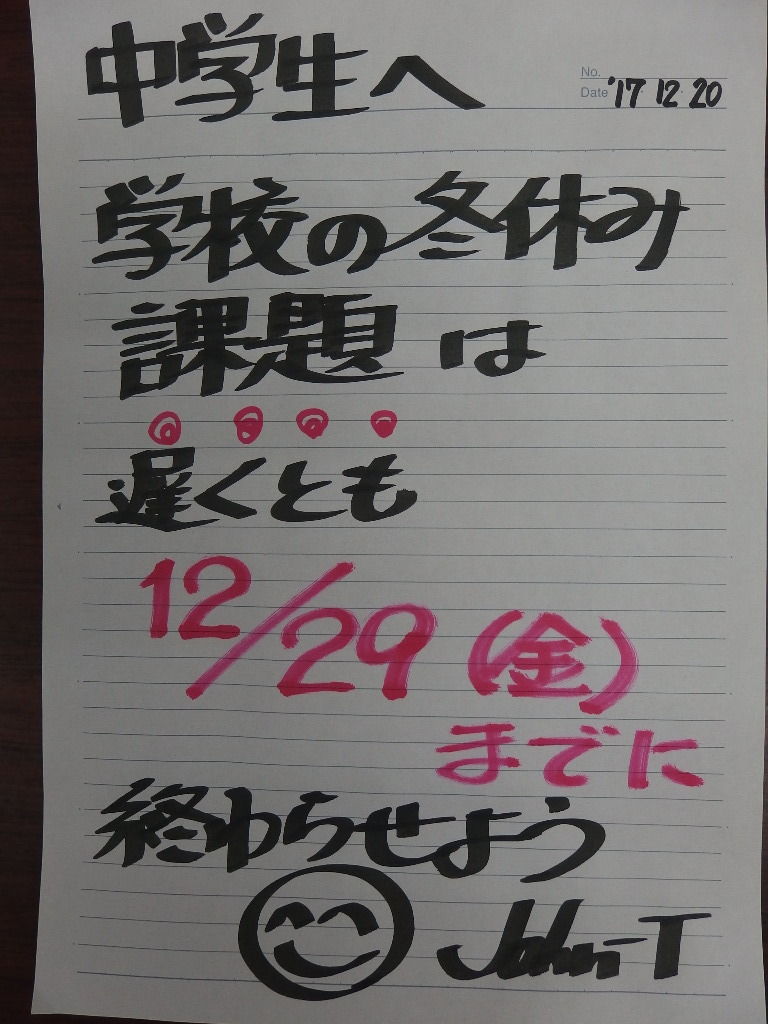 中学生へ
No.
Date '17 12 20
学校の冬休み
課題は
遅くとも
12/29(金)
までに
終わらせよう
John-T